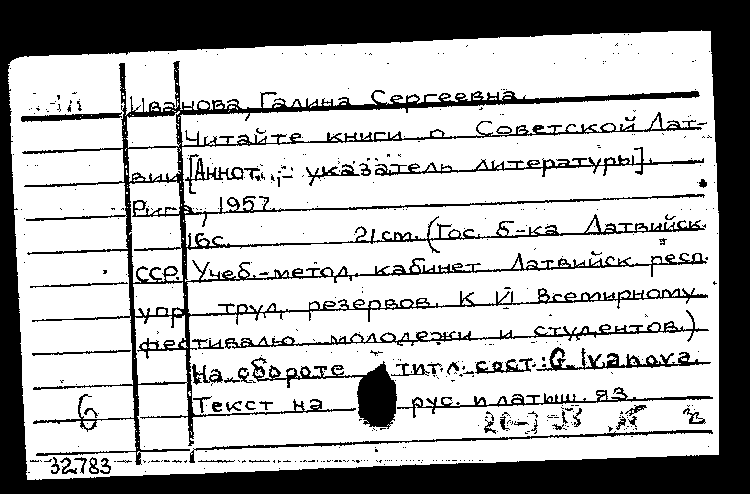 Иванова, Галина Сергеевна.
Читайте книги о Советской Лат-
вии [Аннот. - указатель литературы].
Рига, 1957.
16с. 21 cm. (Гос. б-ка Латвийск.
ССР. Учеб.-метод. кабинет Латвийск. респ.
упр. труд. резервов. К VI Всемирному
фестивалю молодежи и студентов.)
На обороте титл. сост.: G. Ivanova.
6 Текст на рус. и латыш. яз.
32783